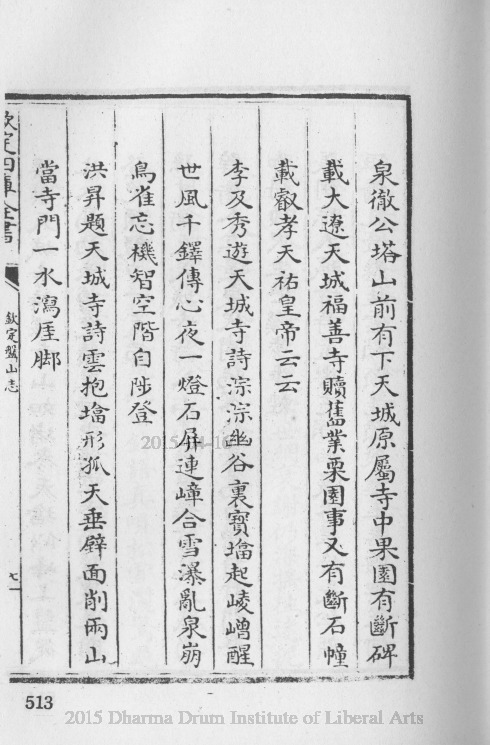 泉徹公塔山前有下天城原屬寺中果園有斷碑
載大遼天城福善寺贖舊業栗園事又有斷石幢
載叡孝天祐皇帝云云
李及秀遊天城寺詩淙淙幽谷裏寳墖起崚嶒醒
世風千鐸傳心夜一燈石屏連嶂合雪瀑亂泉崩
鳥雀忘機智空階自陟登
洪昇題天城寺詩雲抱墖形孤天垂壁面削兩山
當寺門一水瀉厓脚
欽定四庫全書
欽定盤山志
513
2015 Dharma Drum Institute of Liberal Arts